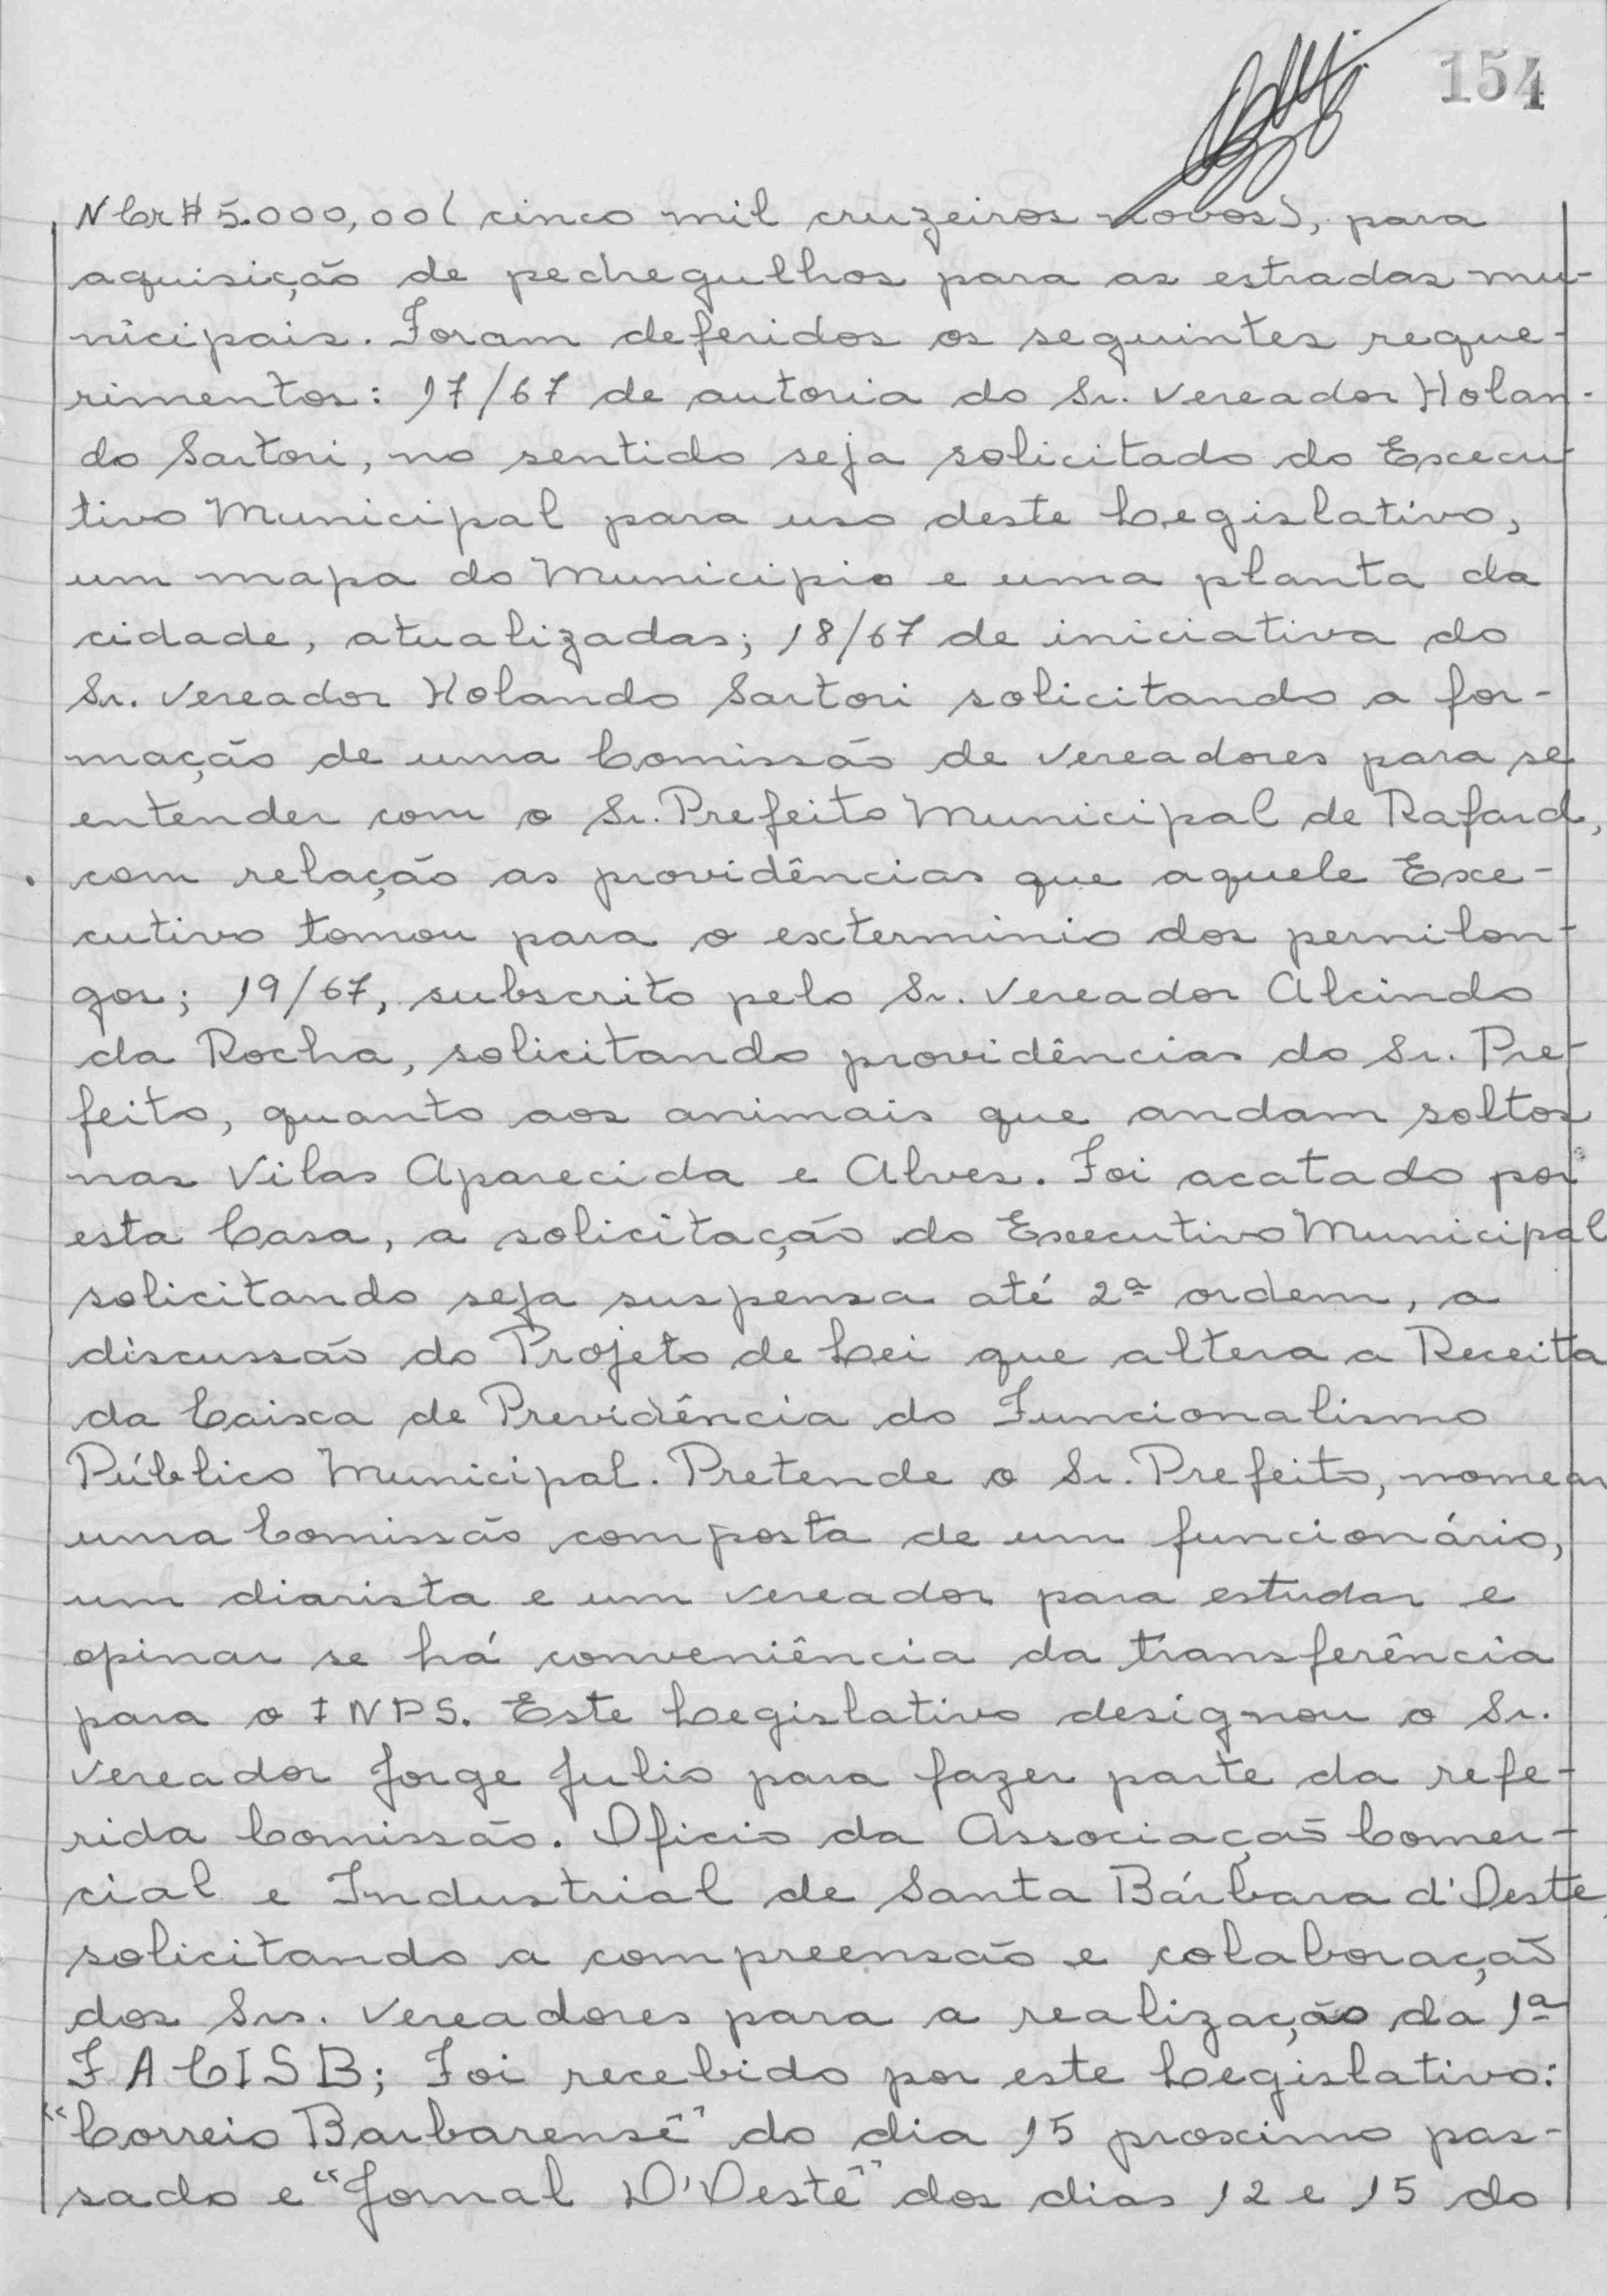 154
NCr$ 5.000,00 (cinco mil cruzeiros novos), para
aquisição de pedregulhos para as estradas mu-
nicipais. Foram deferidos os seguintes reque-
rimentos: 17/67 de autoria do Sr. Vereador Holan-
do Sartori, no sentido seja solicitado do Execu-
tivo Municipal para uso deste Legislativo,
um mapa do Municipio e uma planta da
cidade, atualizadas; 18/67 de iniciativa do
Sr. Vereador Holando Sartori solicitando a for-
mação de uma Comissão de Vereadores para se
entender com o Sr. Prefeito Municipal de Rafard,
com relação as providências que aquele Exe-
cutivo tomou para o exterminio dos pernilon-
gos; 19/67, subscrito pelo Sr. Vereador Alcindo
da Rocha, solicitando providências do Sr. Pre-
feito, quanto aos animais que andam soltos
nas Vilas Aparecida e Alves. Foi acatado por
esta Casa, a solicitação do Executivo Municipal
solicitando seja suspensa até 2ª ordem, a
discussão do Projeto de Lei que altera a Receita
da Caixa de Previdência do Funcionalismo
Público Municipal. Pretende o Sr. Prefeito, nomear
uma Comissão composta de um funcionário,
um diarista e um vereador para estudar e
opinar se há conveniência da transferência
para o INPS. Este Legislativo designou o Sr.
Vereador Jorge Julio para fazer parte da refe-
rida Comissão. Oficio da Associação Comer-
cial e Industrial de Santa Bárbara d'Oeste,
solicitando a compreensão e colaboração
dos Srs. Vereadores para a realização da 1ª
FACISB; Foi recebido por este Legislativo:
"Correio Barbarense" do dia 15 proximo pas-
sado e "Jornal D'Oeste" dos dias 12 e 15 do